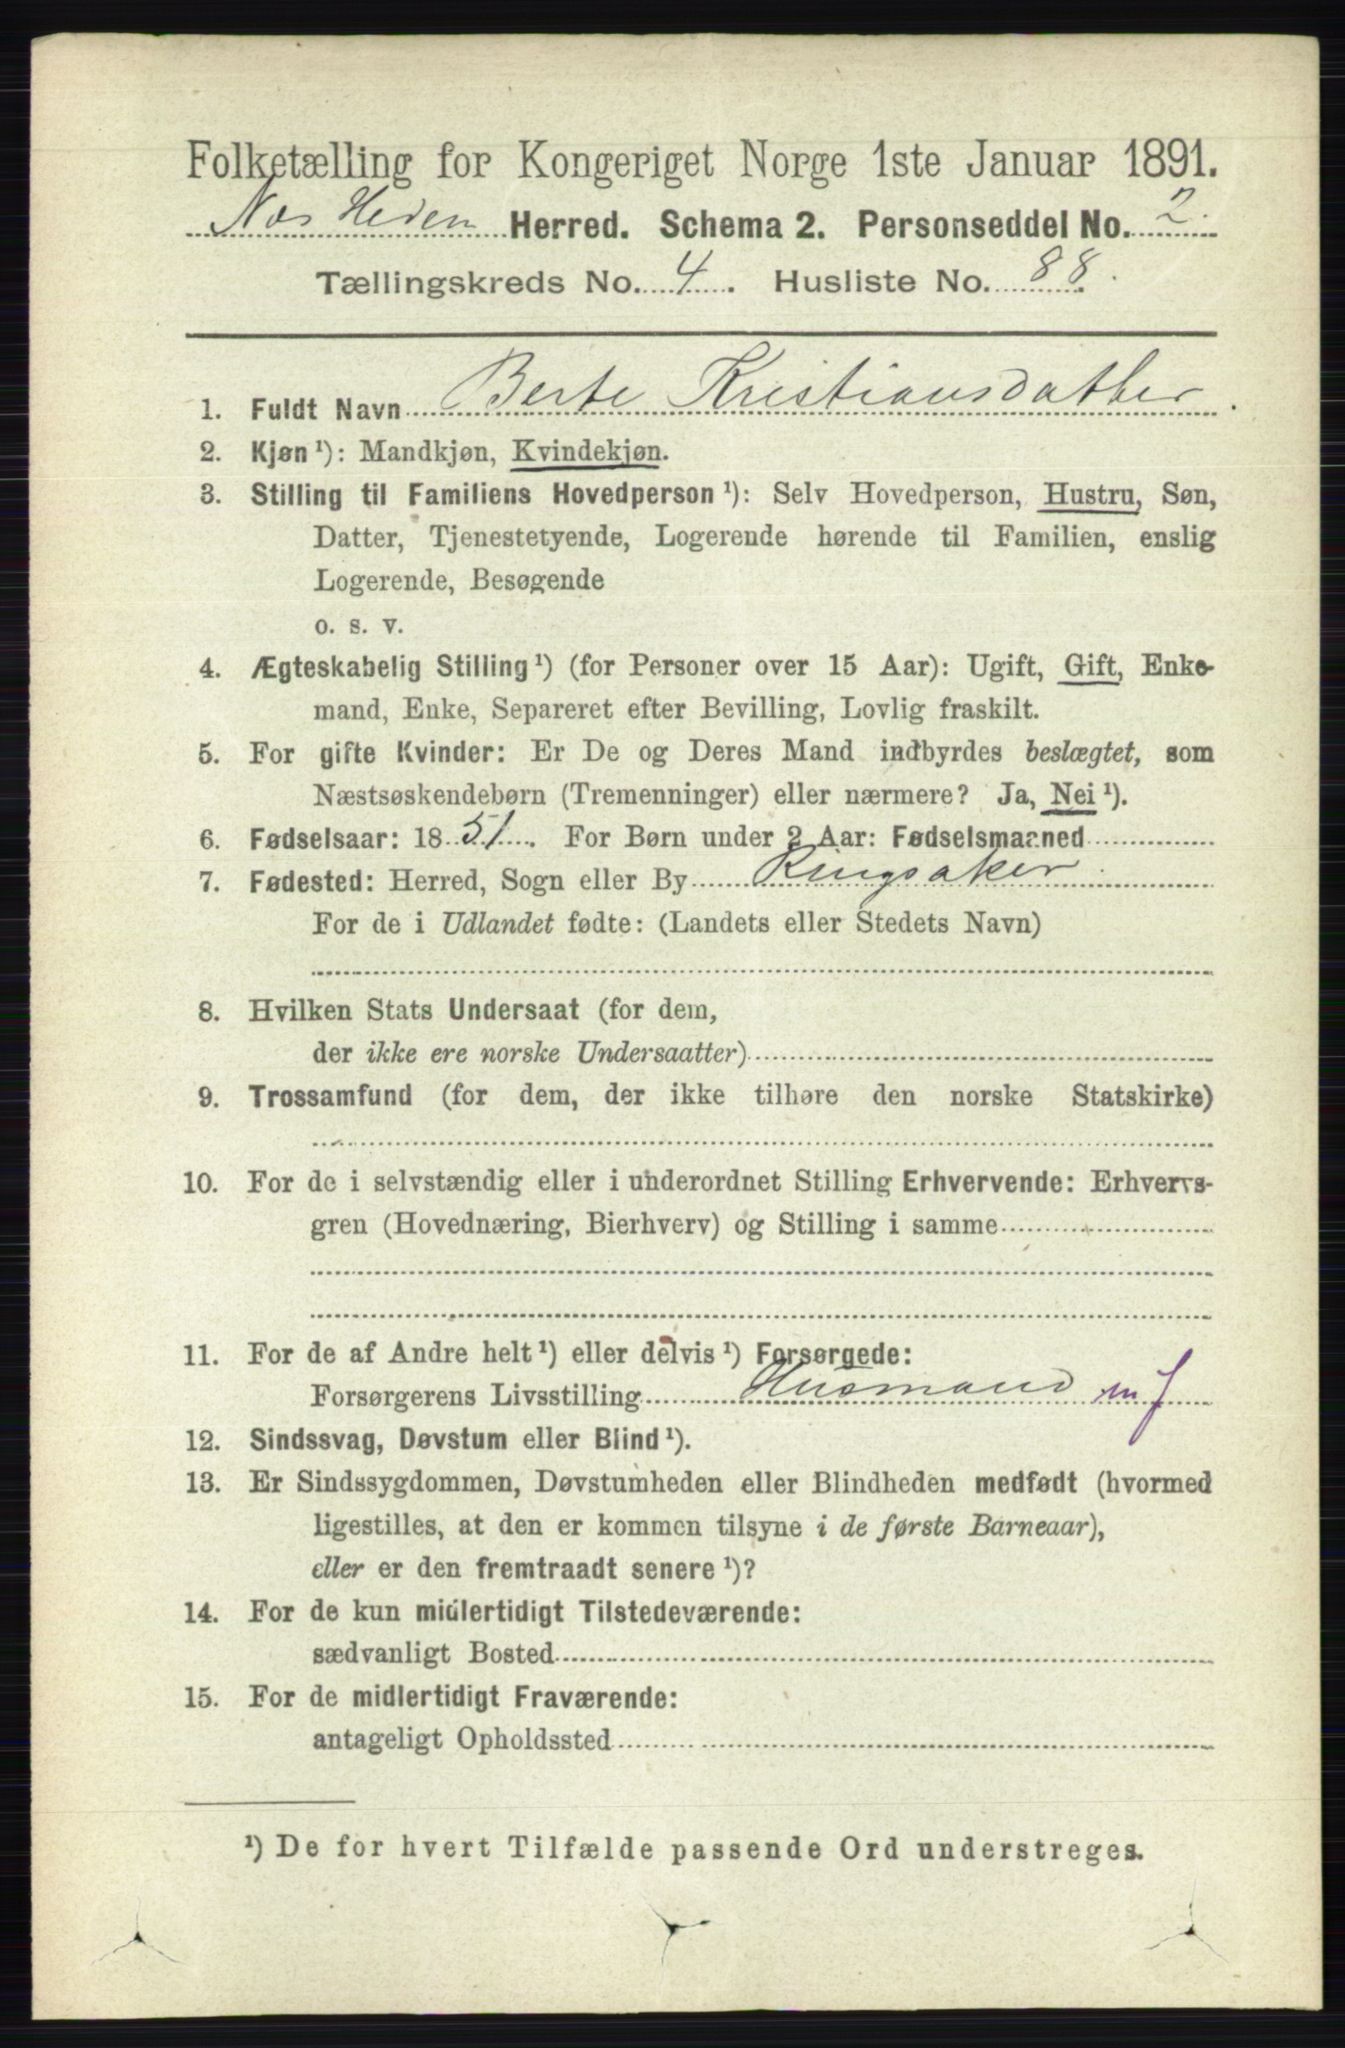 Folketælling for Kongeriget Norge 1ste Januar 1891.
Næs Hedem Herred. Schema 2. Personseddel No. 2.
Tællingskreds No. 4. Husliste No. 88.
1. Fuldt Navn Berte Kristiansdatter.
2. Kjøn ¹): Mandkjøn, Kvindekjøn.
3. Stilling til Familiens Hovedperson ¹): Selv Hovedperson, Hustru, Søn,
Datter, Tjenestetyende, Logerende hørende til Familien, enslig
Logerende, Besøgende
o. s. v.
4. Ægteskabelig Stilling ¹) (for Personer over 15 Aar): Ugift, Gift, Enke-
mand, Enke, Separeret efter Bevilling, Lovlig fraskilt.
5. For gifte Kvinder: Er De og Deres Mand indbyrdes beslægtet, som
Næstsøskendebørn (Tremenninger) eller nærmere? Ja, Nei ¹).
6. Fødselsaar: 1851. For Børn under 2 Aar: Fødselsmaaned
7. Fødested: Herred, Sogn eller By Ringsaker
For de i Udlandet fødte: (Landets eller Stedets Navn)
8. Hvilken Stats Undersaat (for dem,
der ikke ere norske Undersaatter)
9. Trossamfund (for dem, der ikke tilhøre den norske Statskirke)
10. For de i selvstændig eller i underordnet Stilling Erhvervende: Erhvervs-
gren (Hovednæring, Bierhverv) og Stilling i samme
11. For de af Andre helt ¹) eller delvis ¹) Forsørgede:
Forsørgerens Livsstilling Husmand m J
12. Sindssvag, Døvstum eller Blind ¹).
13. Er Sindssygdommen, Døvstumheden eller Blindheden medfødt (hvormed
ligestilles, at den er kommen tilsyne i de første Barneaar),
eller er den fremtraadt senere ¹)?
14. For de kun midlertidigt Tilstedeværende:
sædvanligt Bosted
15. For de midlertidigt Fraværende:
antageligt Opholdssted
¹) De for hvert Tilfælde passende Ord understreges.